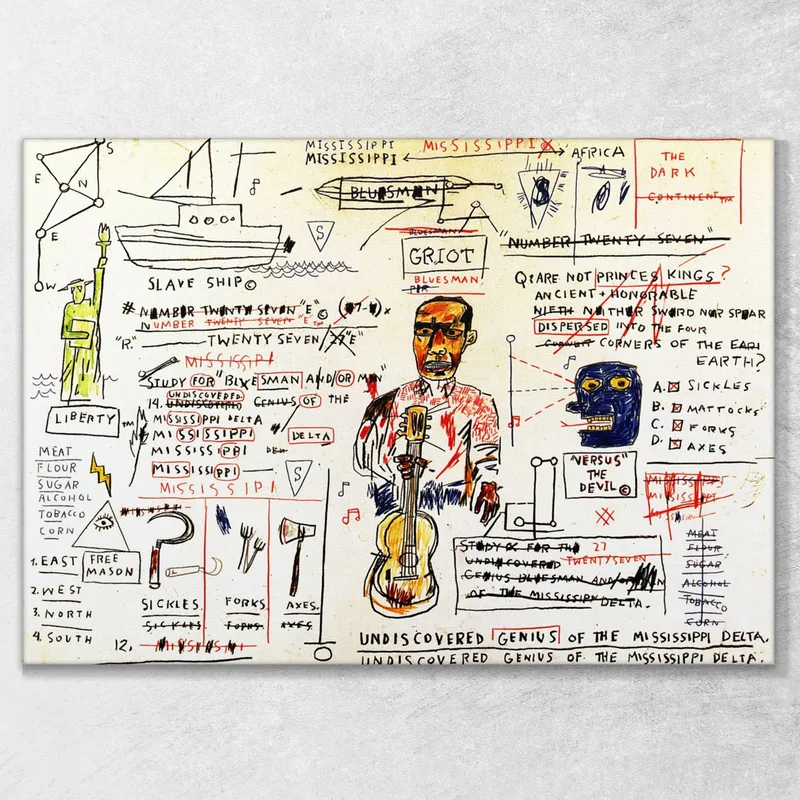 S
E
N
E
W
MISSISSIPPI
MISSISSIPPI
MISSISSIPPI
AFRICA
THE
DARK
CONTINENT™
BLUESMAN
S
S
BLUESMAN
GRIOT
BLUESMAN
"NUMBER TWENTY SEVEN"
SLAVE SHIP©
# NUMBER TWENTY SEVEN "E"©
NUMBER TWENTY SEVEN "E™
"R." TWENTY SEVEN
MISSISSIPPI
STUDY FOR "BLUESMAN AND/OR MAN"
UNDISCOVERED
14. UNDISCOVERED GENIUS OF THE
MISSISSIPPI DELTA
MISSISSIPPI DELTA
MISSISSIPPI
MISSISSIPPI
MISSISSIPPI
S
LIBERTY™
MEAT
FLOUR
SUGAR
ALCOHOL
TOBACCO
CORN
1. EAST
2. WEST
3. NORTH
4. SOUTH
FREE
MASON
SICKLES.
SICKLES
FORKS
FORKS.
AXES.
AXES
12. MISSISSIPPI
Q: ARE NOT PRINCES KINGS?
ANCIENT + HONORABLE
NIETH NEITHER SWORD NOR SPEAR
DISPERSED INTO THE FOUR
CORNERS OF THE EARI
EARTH?
A. SICKLES
B. MATTOCKS
C. FORKS
D. AXES
"VERSUS"
THE
DEVIL©
MISSISSIPPI
MISSISSIPPI
MEAT
FLOUR
SUGAR
ALCOHOL
TOBACCO
CORN
STUDY FOR THE 27
UNDISCOVERED TWENTYSEVEN
GENIUS BLUESMAN AND/OR
OF THE MISSISSIPPI DELTA.
UNDISCOVERED GENIUS OF THE MISSISSIPPI DELTA.
UNDISCOVERED GENIUS OF THE MISSISSIPPI DELTA.